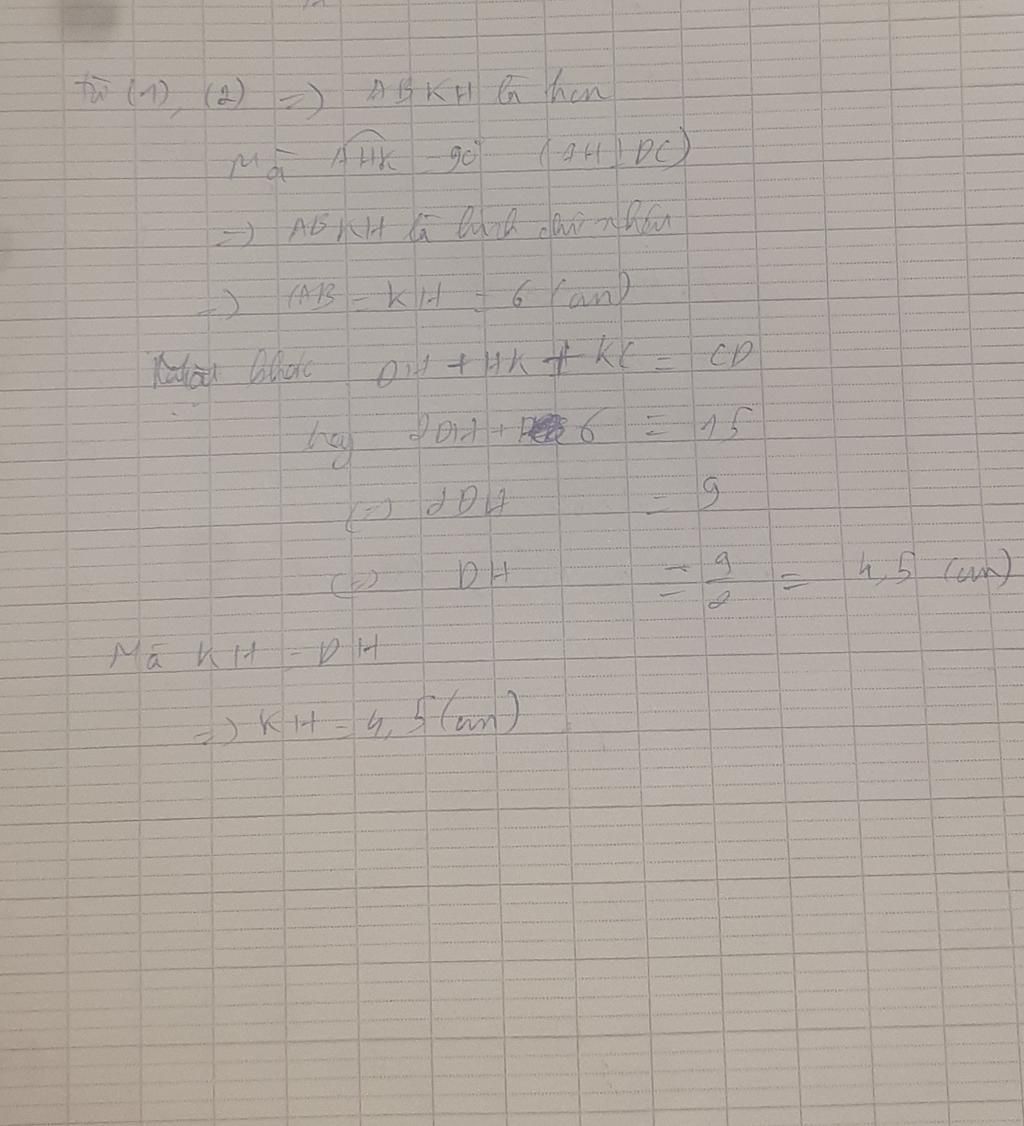 Từ (1), (2) => ABKH là hcn
Mà AHK = 90° (AH ⊥ DC)
=> ABKH là hình chữ nhật
=> AB = KH = 6 (cm)
khác DH + HK + KC = CD
hay 2DH + 6 = 15
<=> 2DH = 9
<=> DH = 9/2 = 4,5 (cm)
Mà KH = DH
=> KH = 4,5 (cm)